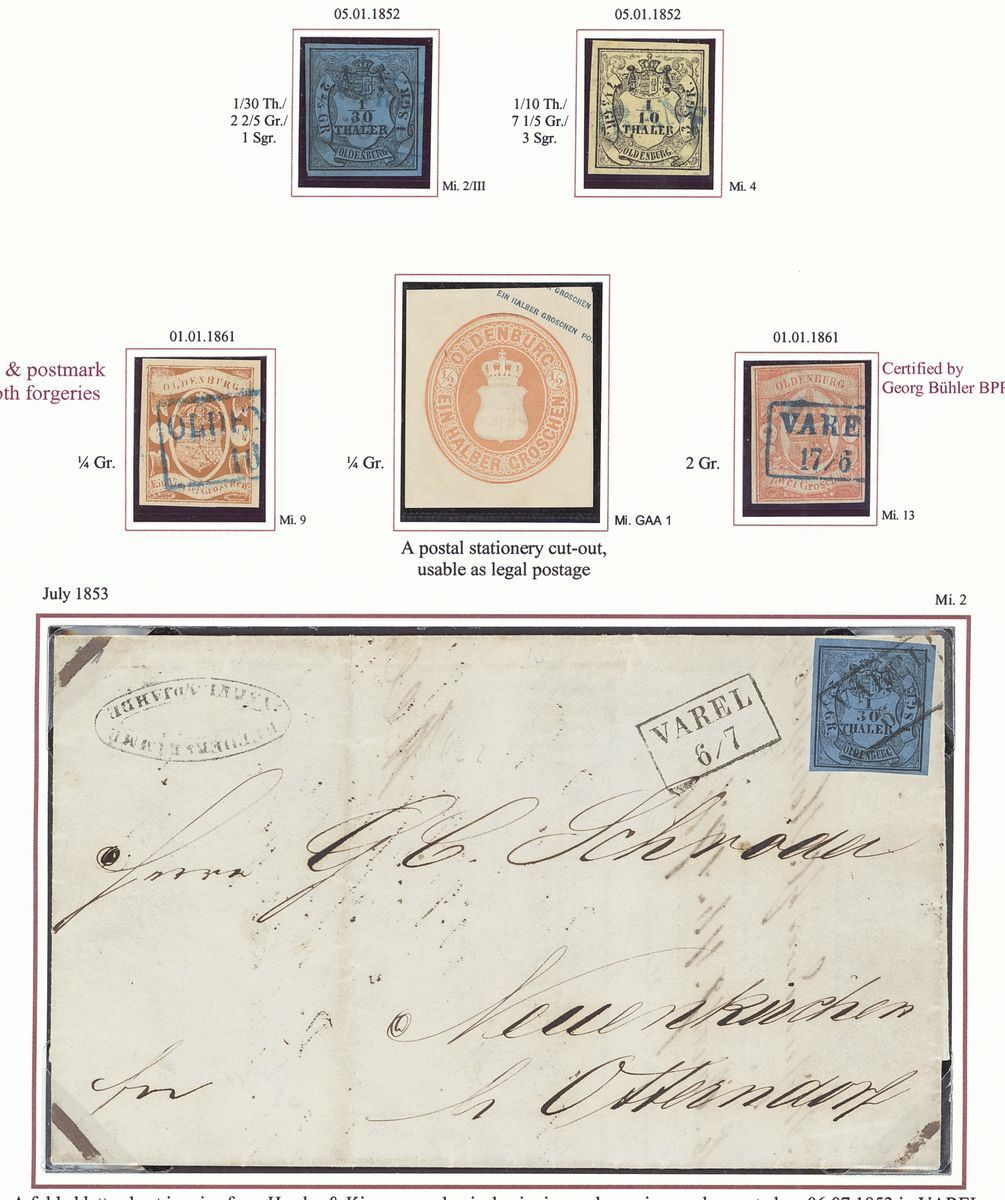 05.01.1852
05.01.1852
1/30 Th./
2 2/5 Gr./
1 Sgr.
2 2/5 GR.
1
30
THALER
1 SGR.
OLDENBURG
Mi. 2/III
1/10 Th./
7 1/5 Gr./
3 Sgr.
7 1/5 GR.
1
10
THALER
3 SGR.
OLDENBURG
Mi. 4
01.01.1861
& postmark
oth forgeries
¼ Gr.
OLDENBURG
Mi. 9
¼ Gr.
GROSCHEN
EIN HALBER GROSCHEN POS
OLDENBURG
½ ½
EIN HALBER GROSCHEN
Mi. GAA 1
A postal stationery cut-out,
usable as legal postage
01.01.1861
Certified by
Georg Bühler BPP
2 Gr.
OLDENBURG
VARE
17/6
Mi. 13
July 1853
Mi. 2
VAREL
6/7
1
30
THALER
OLDENBURG
Herrn G C. Schröder
Neuenkirchen
Otterndorf